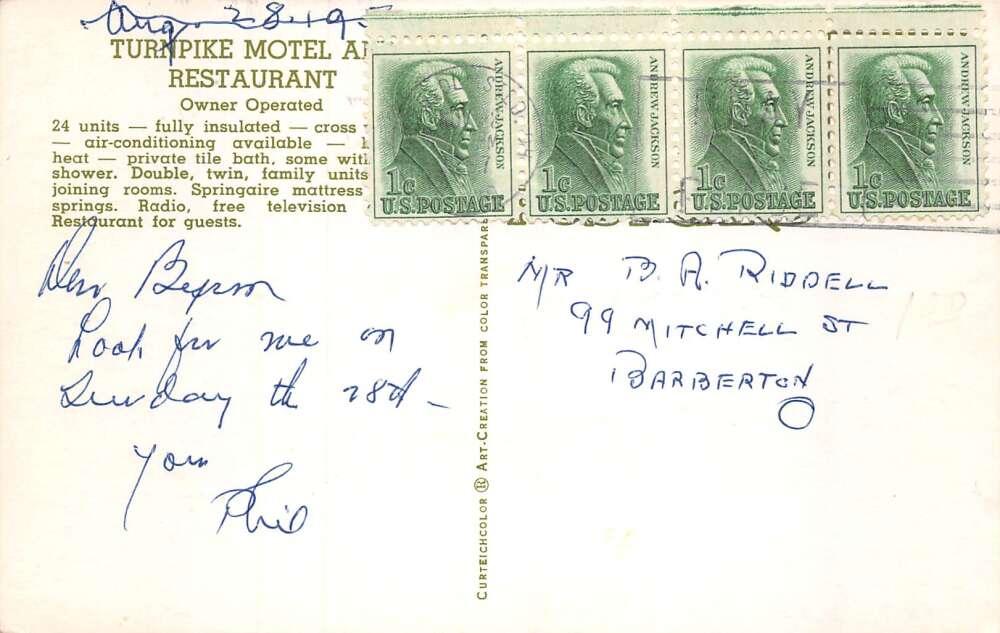 Aug 28.195
TURNPIKE MOTEL A
RESTAURANT
Owner Operated
24 units — fully insulated — cross
— air-conditioning available —
heat — private tile bath, some with
shower. Double, twin, family units
joining rooms. Springaire mattress
springs. Radio, free television
Restaurant for guests.
Dear
Look for me on
Sunday the 28th -
Yours
Phil
CURTEICHCOLOR ® ART-CREATION FROM COLOR TRANSPARE
ANDREW JACKSON
1c
U.S.POSTAGE
ANDREW JACKSON
1c
U.S.POSTAGE
ANDREW JACKSON
1c
U.S.POSTAGE
ANDREW JACKSON
1c
U.S.POSTAGE
MR B. A. RIDDELL
99 MITCHELL ST
BARBERTON
O